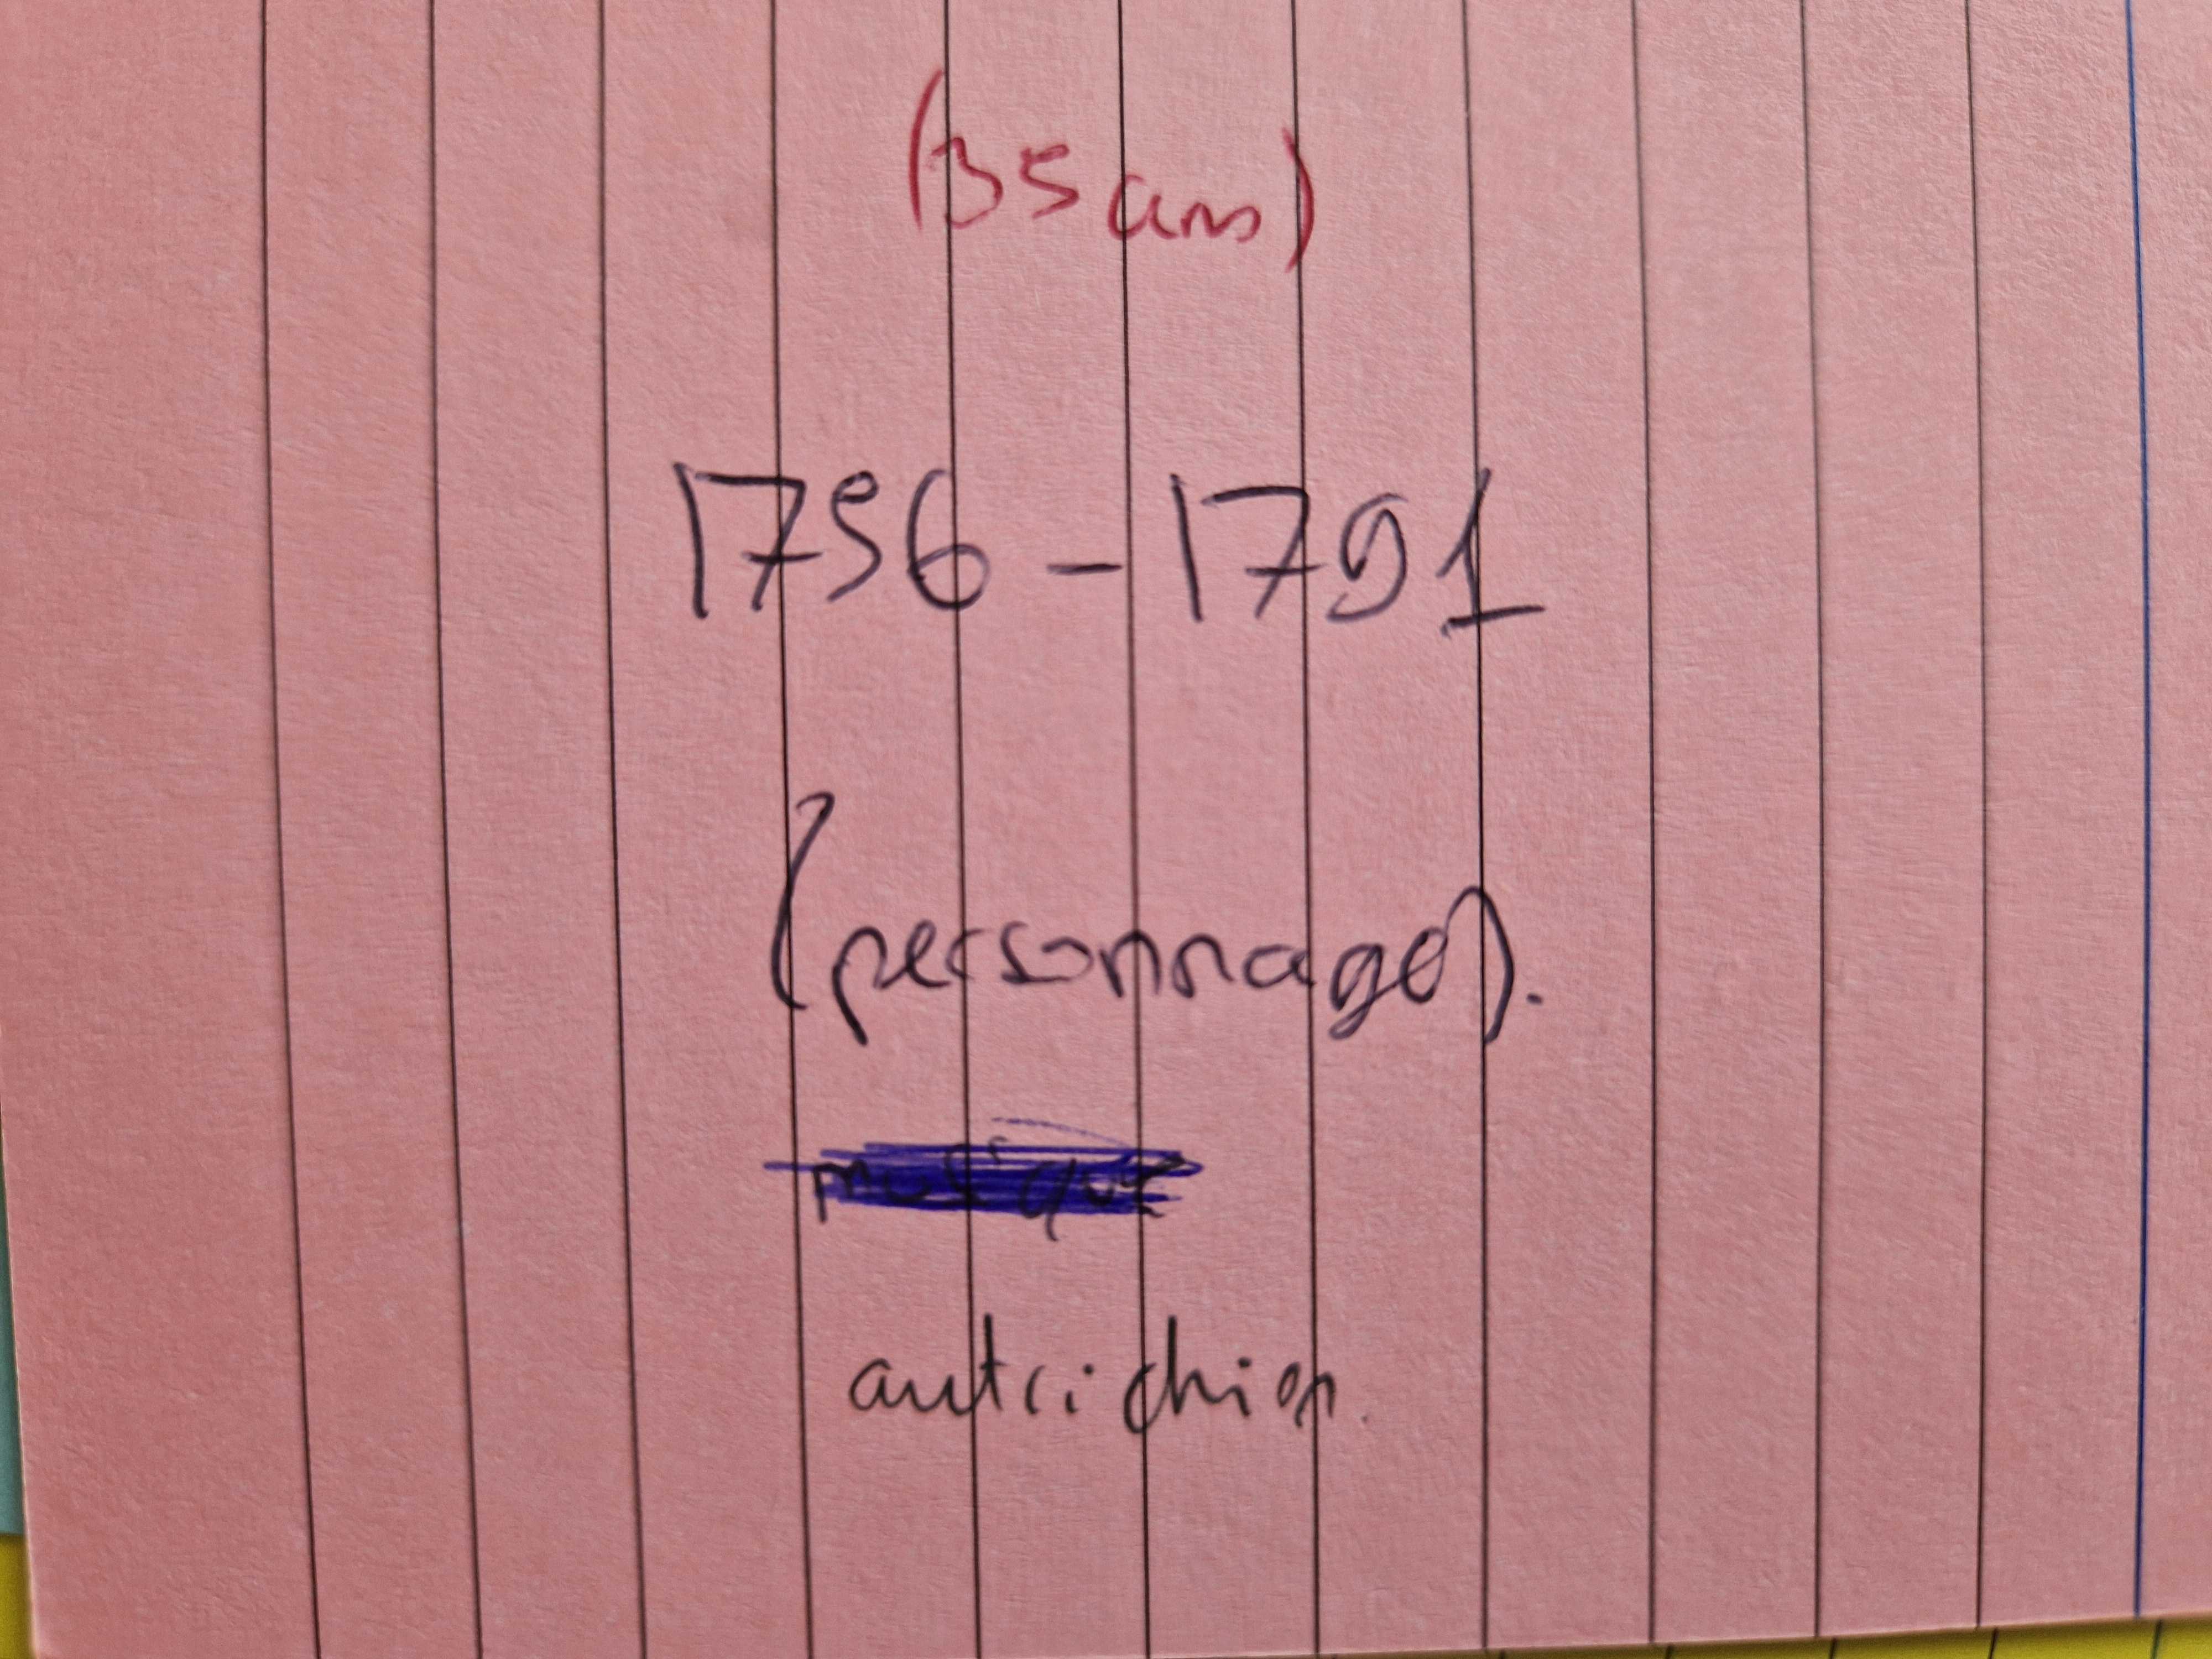 (35 ans)
1756 - 1791
(personnage).
musique
autrichien.